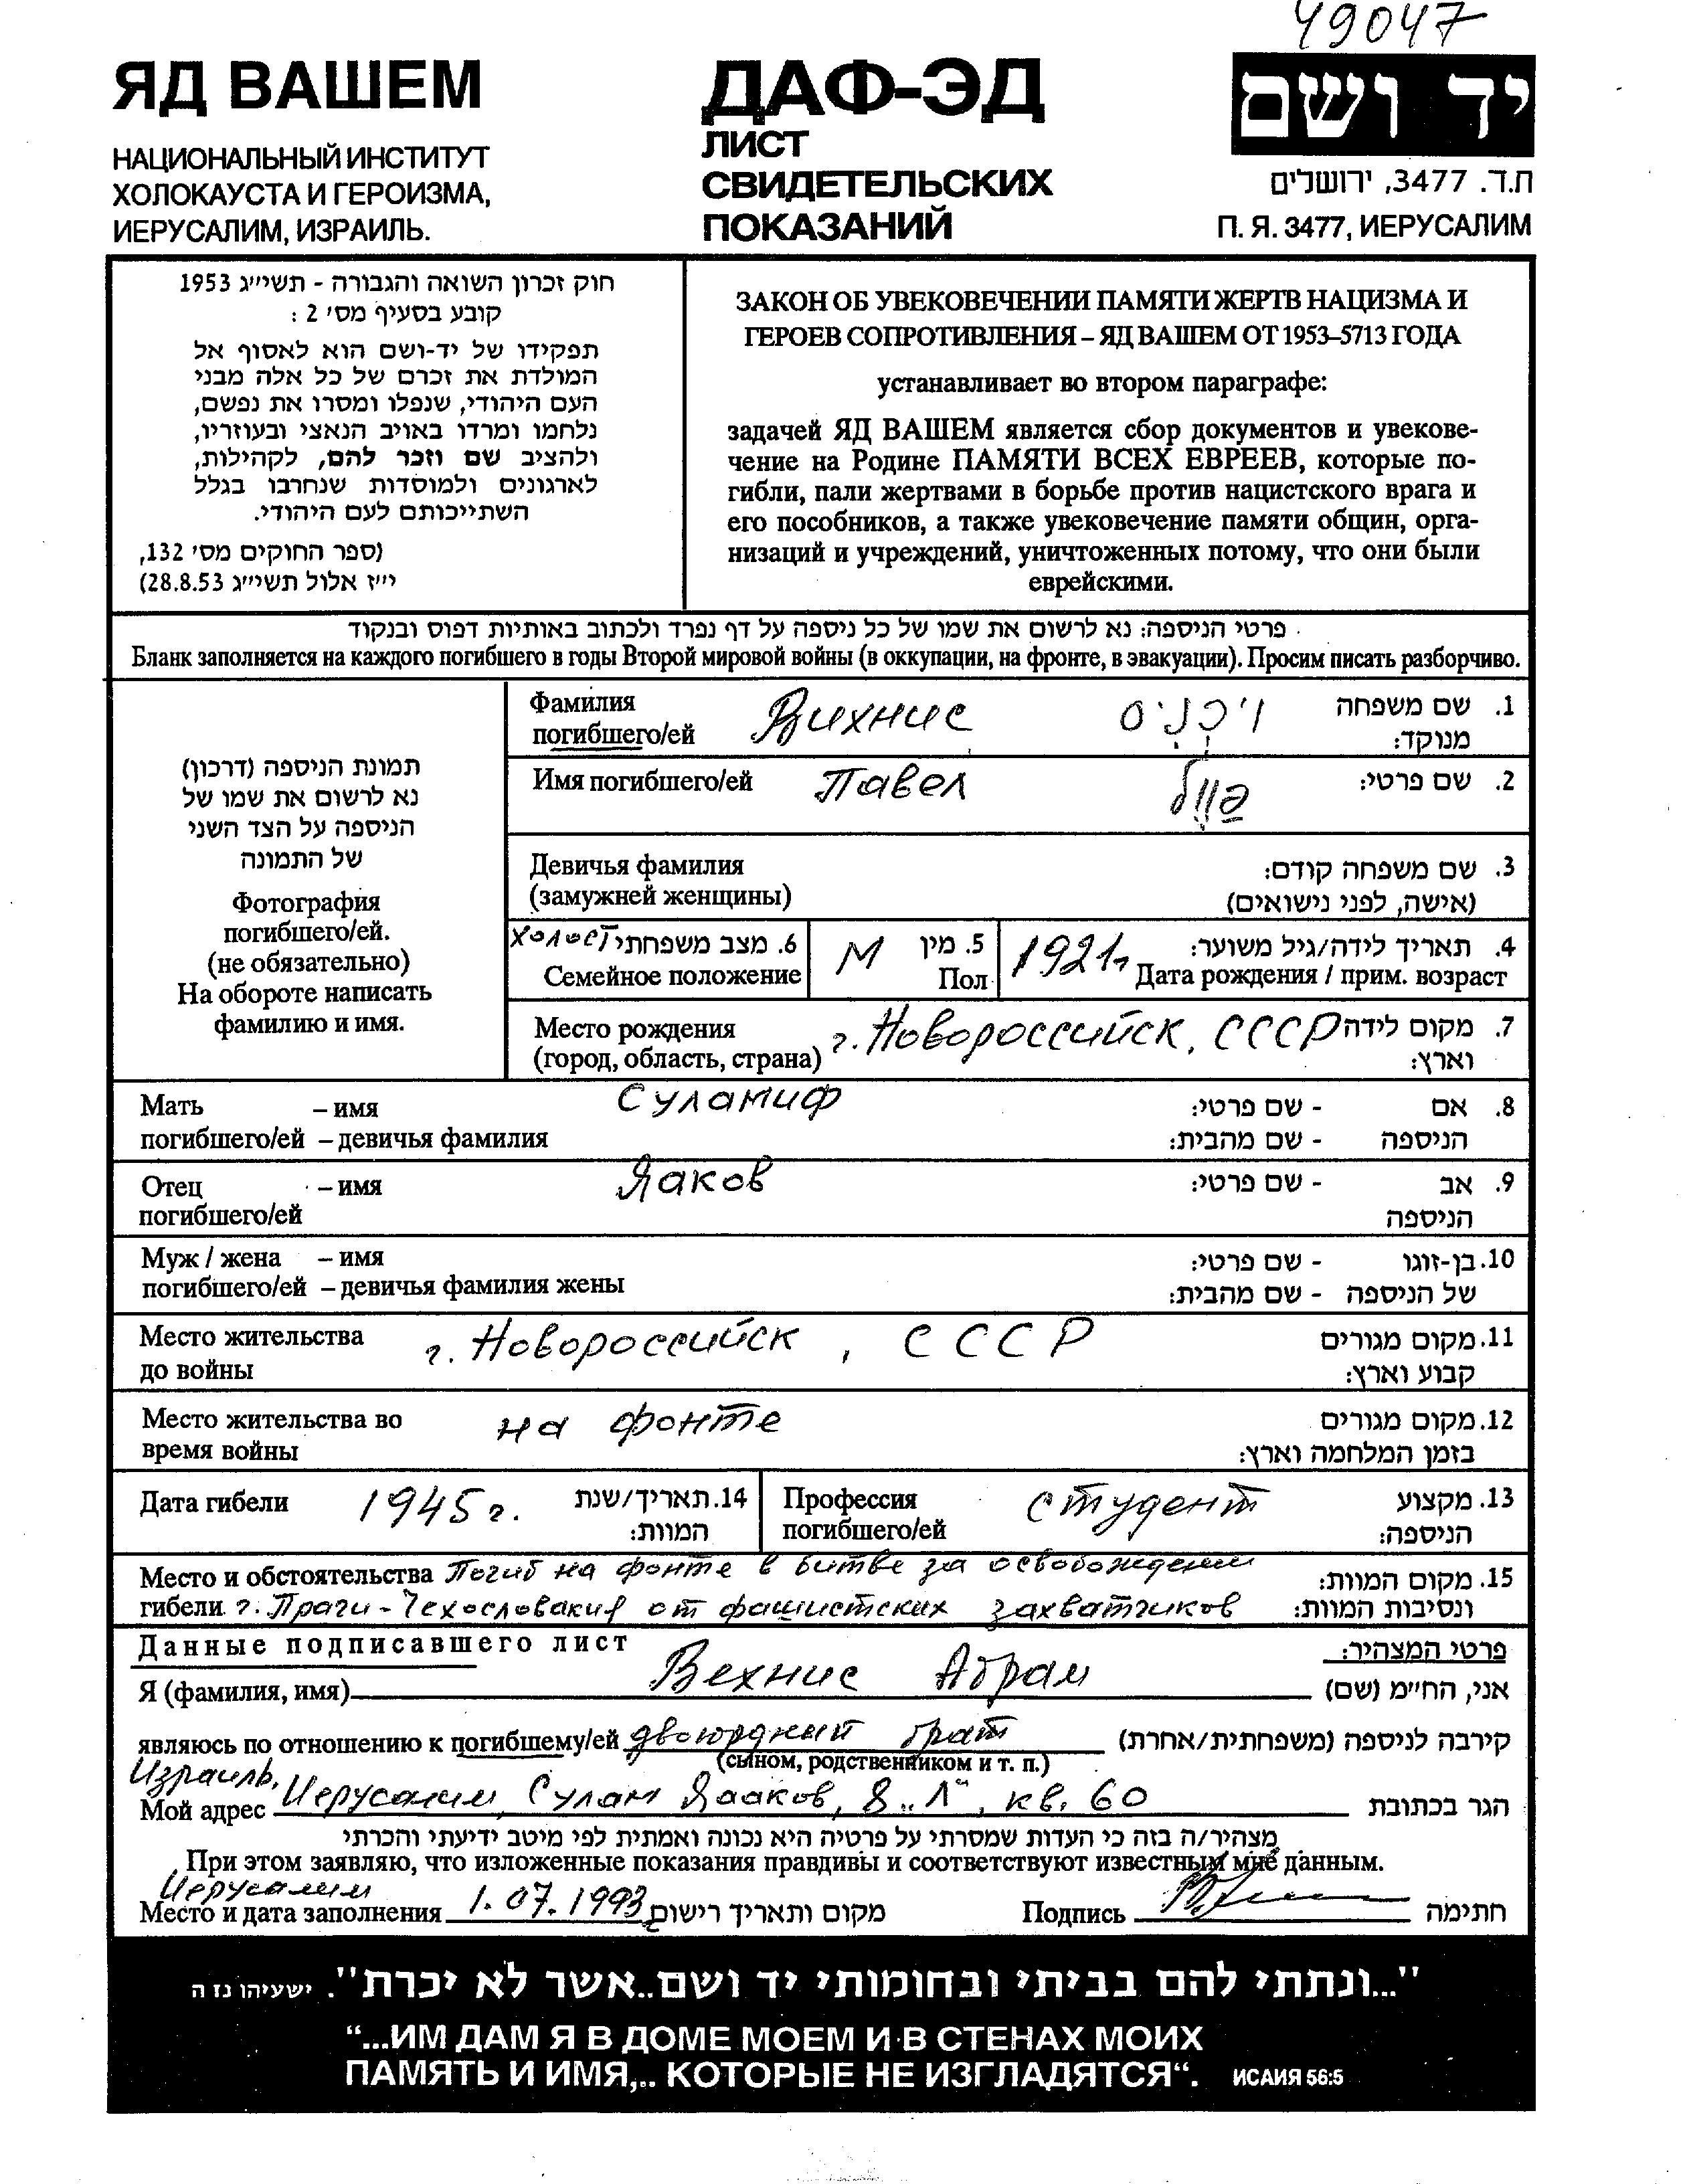 49047
ЯД ВАШЕМ
НАЦИОНАЛЬНЫЙ ИНСТИТУТ
ХОЛОКАУСТА И ГЕРОИЗМА,
ИЕРУСАЛИМ, ИЗРАИЛЬ.
ДАФ-ЭД
ЛИСТ
СВИДЕТЕЛЬСКИХ
ПОКАЗАНИЙ
יד ושם
ת.ד. 3477, ירושלים
П. Я. 3477, ИЕРУСАЛИМ
חוק זכרון השואה והגבורה - תשי״ג 1953
קובע בסעיף מס׳ 2 :
תפקידו של יד-ושם הוא לאסוף אל
המולדת את זכרם של כל אלה מבני
העם היהודי, שנפלו ומסרו את נפשם,
נלחמו ומרדו באויב הנאצי ובעוזריו,
ולהציב שם וזכר להם, לקהילות,
לארגונים ולמוסדות שנחרבו בגלל
השתייכותם לעם היהודי.
(ספר החוקים מס׳ 132,
י״ז אלול תשי״ג 28.8.53)
ЗАКОН ОБ УВЕКОВЕЧЕНИИ ПАМЯТИ ЖЕРТВ НАЦИЗМА И
ГЕРОЕВ СОПРОТИВЛЕНИЯ – ЯД ВАШЕМ ОТ 1953–5713 ГОДА
устанавливает во втором параграфе:
задачей ЯД ВАШЕМ является сбор документов и увекове-
чение на Родине ПАМЯТИ ВСЕХ ЕВРЕЕВ, которые по-
гибли, пали жертвами в борьбе против нацистского врага и
его пособников, а также увековечение памяти общин, орга-
низаций и учреждений, уничтоженных потому, что они были
еврейскими.
פרטי הניספה: נא לרשום את שמו של כל ניספה על דף נפרד ולכתוב באותיות דפוס ובנקוד
Бланк заполняется на каждого погибшего в годы Второй мировой войны (в оккупации, на фронте, в эвакуации). Просим писать разборчиво.
תמונת הניספה (דרכון)
נא לרשום את שמו של
הניספה על הצד השני
של התמונה
Фотография
погибшего/ей.
(не обязательно)
На обороте написать
фамилию и имя.
Фамилия 1. שם משפחה
погибшего/ей Вихнис ויכניס מנוקד:
Имя погибшего/ей Павел פוול 2. שם פרטי:
Девичья фамилия 3. שם משפחה קודם:
(замужней женщины) (אישה, לפני נישואים)
холост 6. מצב משפחתי
Семейное положение
М 5. מין
Пол
1921г 4. תאריך לידה/גיל משוער:
Дата рождения / прим. возраст
Место рождения г. Новороссийск, СССР 7. מקום לידה
(город, область, страна) וארץ:
Мать – имя Суламиф 8. אם - שם פרטי:
погибшего/ей – девичья фамилия הניספה - שם מהבית:
Отец – имя Яаков 9. אב - שם פרטי:
погибшего/ей הניספה
Муж / жена – имя 10. בן-זוגו - שם פרטי:
погибшего/ей – девичья фамилия жены של הניספה - שם מהבית:
Место жительства г. Новороссийск, СССР 11. מקום מגורים
до войны קבוע וארץ:
Место жительства во на фонте 12. מקום מגורים
время войны בזמן המלחמה וארץ:
Дата гибели 1945 г. 14. תאריך/שנת
המוות:
Профессия студент 13. מקצוע
погибшего/ей הניספה:
Место и обстоятельства Погиб на фонте в битве за освобождении 15. מקום המוות:
гибели г. Праги - Чехословакиг от фашистских захватчиков ונסיבות המוות:
Данные подписавшего лист פרטי המצהיר:
Я (фамилия, имя) Вехнис Абрам אני, החי״מ (שם)
являюсь по отношению к погибшему/ей двоюрдный брат קירבה לניספה (משפחתית/אחרת)
(сыном, родственником и т. п.)
Израиль,
Мой адрес Иерусалим, Сулам Яааков, 8 „Л“, кв. 60 הגר בכתובת
מצהיר/ה בזה כי העדות שמסרתי על פרטיה היא נכונה ואמתית לפי מיטב ידיעתי והכרתי
При этом заявляю, что изложенные показания правдивы и соответствуют известным мне данным.
Иерусалим
Место и дата заполнения 1.07.1993 מקום ותאריך רישום Подпись חתימה
"...ונתתי להם בביתי ובחומותי יד ושם..אשר לא יכרת". ישעיהו נז ה
“...ИМ ДАМ Я В ДОМЕ МОЕМ И В СТЕНАХ МОИХ
ПАМЯТЬ И ИМЯ,.. КОТОРЫЕ НЕ ИЗГЛАДЯТСЯ“. ИСАИЯ 56:5